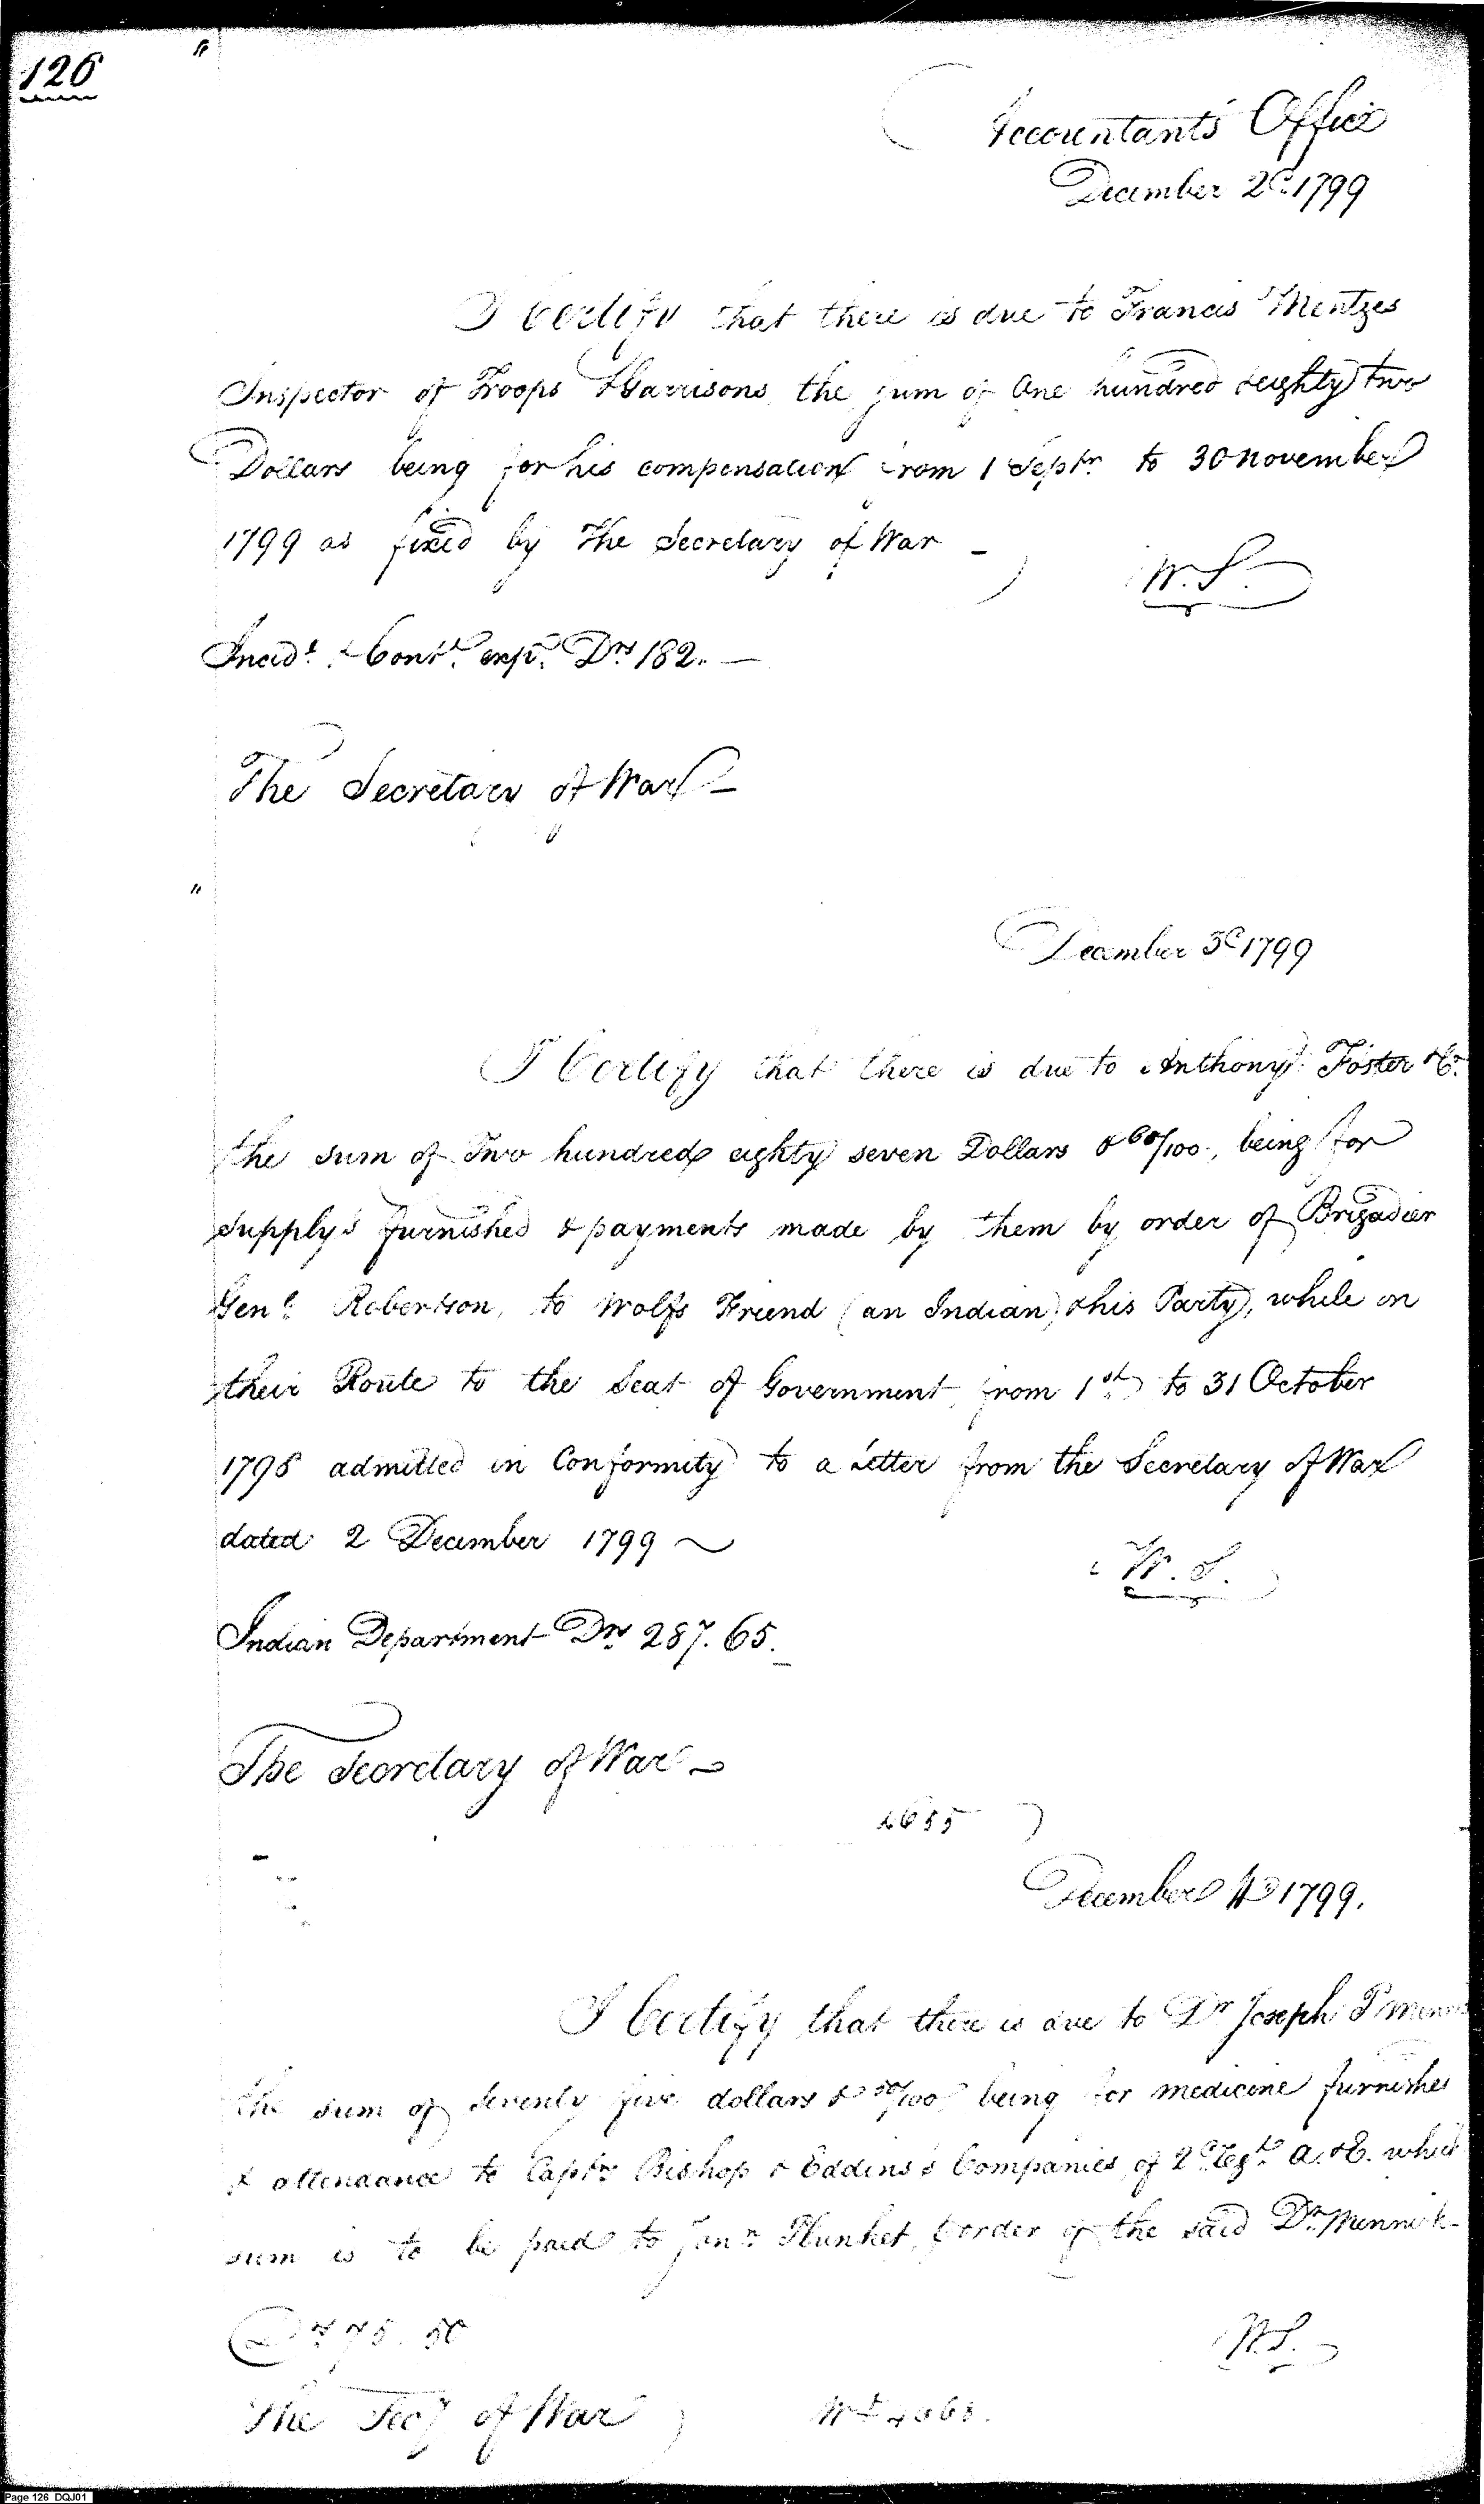 126
"
Accountants Office
December 2d. 1799
I Certify that there is due to Francis Mentges
Inspector of Troops & Garrisons the sum of One hundred & eighty two
Dollars being for his compensation from 1 Septr. to 30 november
1799 as fixed by the Secretary of War -
W. S.
Incidt. & Contt. exps. Drs 182. —
The Secretary of War -
"
December 3d 1799
I Certify that there is due to Anthony Foster & Co.
the sum of Two hundred eighty seven Dollars & 65/100, being for
Supply's furnished & payments made by them by order of Brigadier
Genl. Robertson, to Wolfs Friend (an Indian) & his Party, while on
their Route to the Seat of Government, from 1st to 31 October
1798 admitted in Conformity to a Letter from the Secretary of War
dated 2 December 1799 ~
W. S.
Indian Department Drs 287. 65.
The Secretary of War -
December 4 1799.
I Certify that there is due to Dr Joseph
the sum of Seventy five dollars & 50/100 being for medicine furnished
& attendance to Captns Bishop & Eddins's Companies of 2d Regt. A. & E. which
sum is to be paid to Plunket, order of the said Dr.
Drs 75. 50
W. S.
The Secy of War